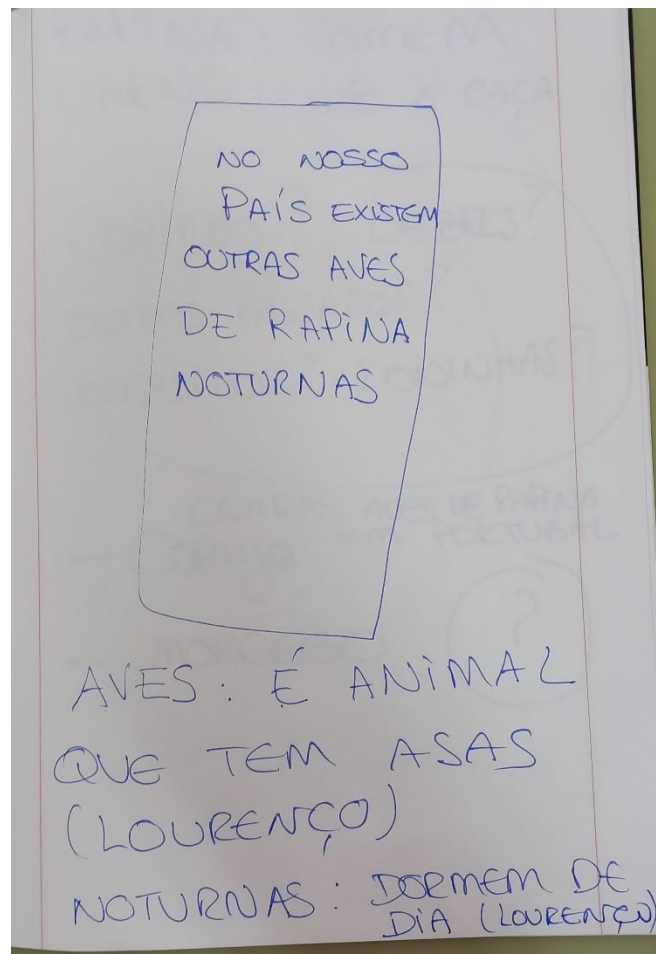 NO NOSSO
PAÍS EXISTEM
OUTRAS AVES
DE RAPINA
NOTURNAS
AVES: É ANIMAL
QUE TEM ASAS
(LOURENÇO)
NOTURNAS: DORMEM DE
DIA (LOURENÇO)